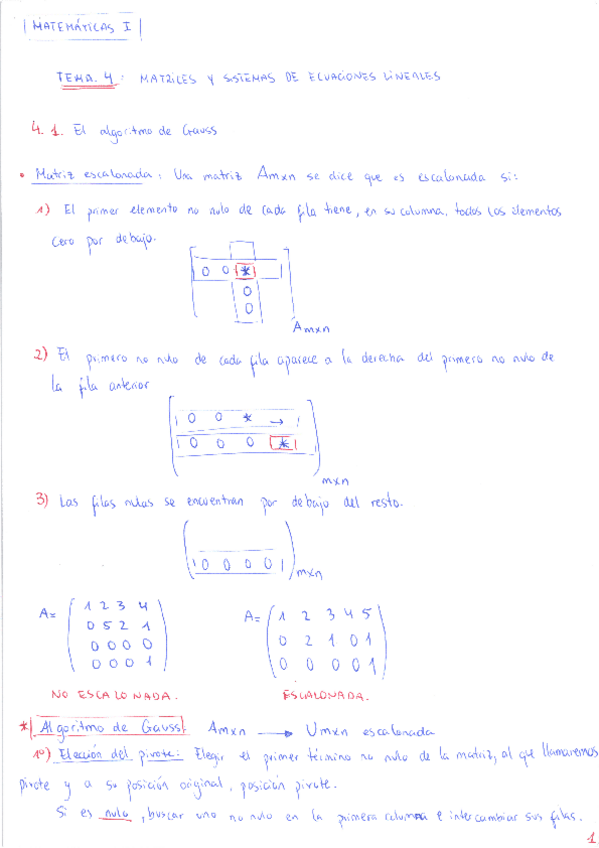 MATEMÁTICAS I
TEMA. 4: MATRICES Y SISTEMAS DE ECUACIONES LINEALES
4. 1. El algoritmo de Gauss
• Matriz escalonada: Una matriz Amxn se dice que es escalonada si:
1) El primer elemento no nulo de cada fila tiene, en su columna, todos los elementos
cero por debajo.
0 0 *
0
0
Amxn
2) El primero no nulo de cada fila aparece a la derecha del primero no nulo de
la fila anterior
0 0 * →
0 0 0 *
mxn
3) Las filas nulas se encuentran por debajo del resto.
0 0 0 0
mxn
A= 1 2 3 4
0 5 2 1
0 0 0 0
0 0 0 1
NO ESCALONADA.
A= 1 2 3 4 5
0 2 1 0 1
0 0 0 0 1
ESCALONADA.
* Algoritmo de Gauss Amxn → Umxn escalonada
1º) Elección del pivote: Elegir el primer término no nulo de la matriz, al que llamaremos
pivote y a su posición original, posición pivote.
Si es nulo, buscar uno no nulo en la primera columna e intercambiar sus filas.
1